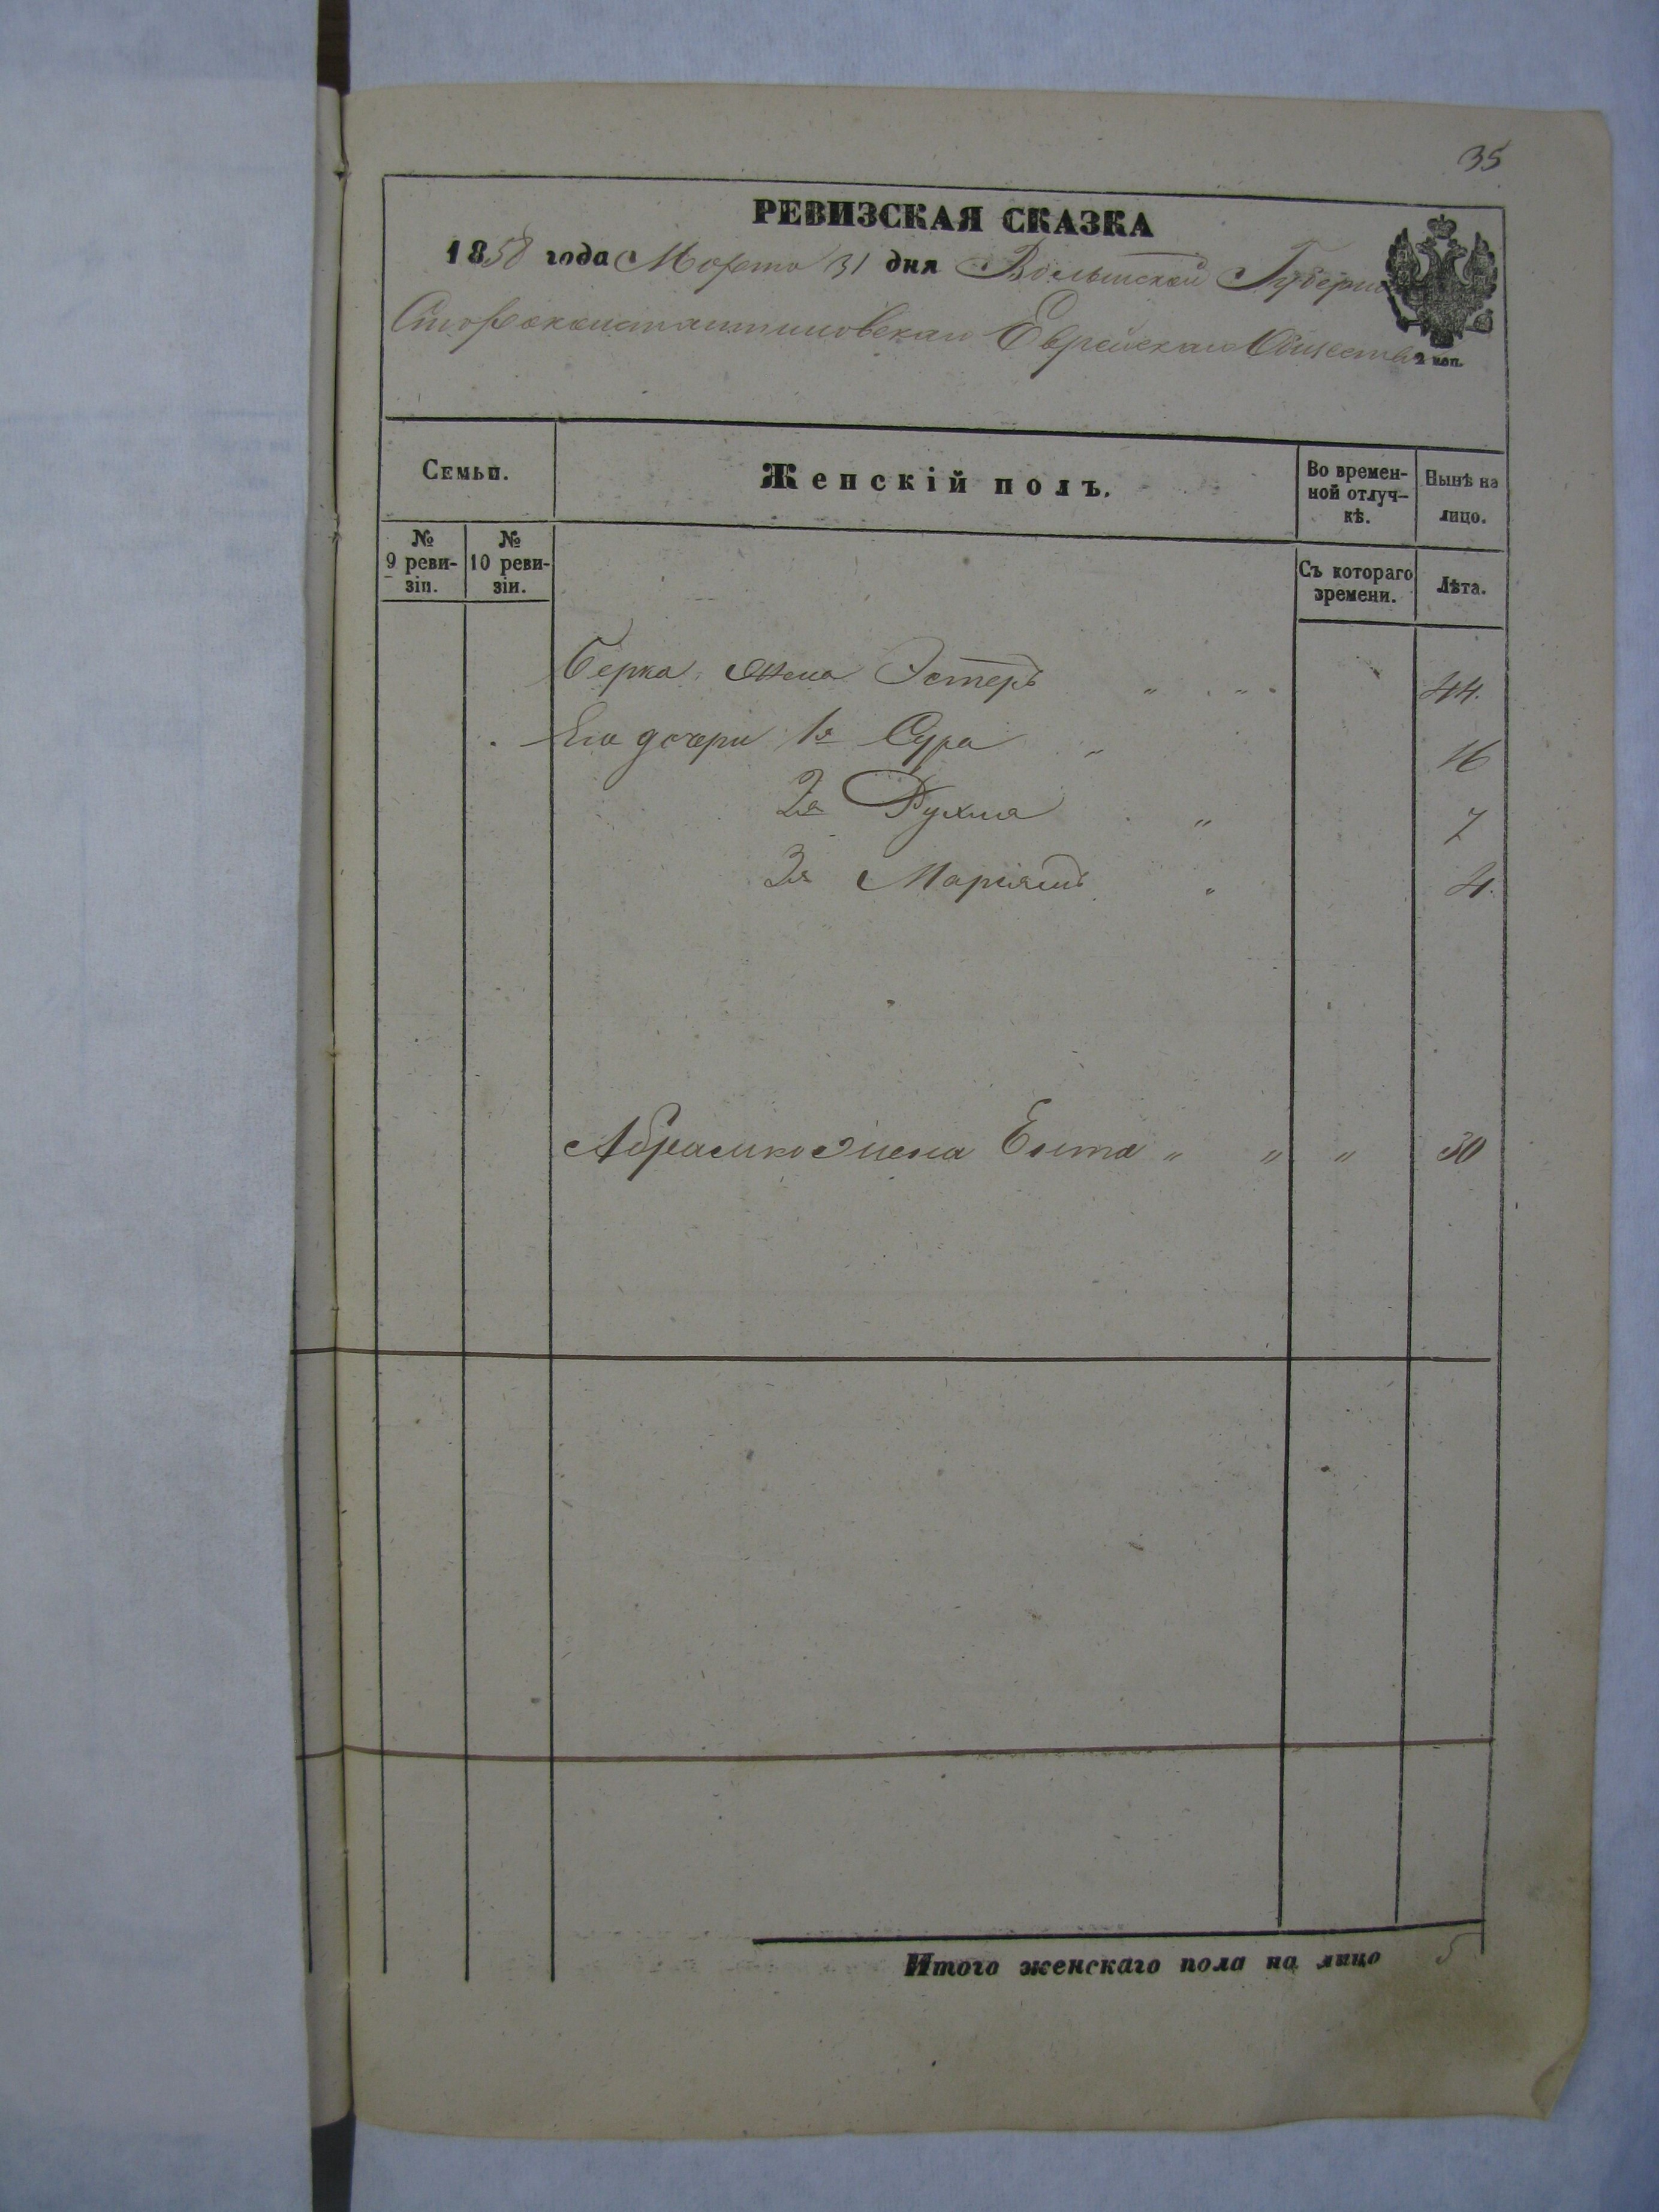 35
РЕВИЗСКАЯ СКАЗКА
1858 года Марта 31 дня Волынской Губернии
Староконстантиновскаго Еврейскаго Общества
2 коп.
Семьи. Женскій полъ. Во времен-ной отлуч-кѣ. Нынѣ на лицо.
№ 9 реви-зіи. № 10 реви-зіи. Съ котораго времени. Лѣта.
Берка жена Эстеръ " " 44.
Его дочери 1я Сура " 16
2я Рухля " 7
3я Маріямъ " 4.
Абрамка жена Ента " " " 30
Итого женскаго пола на лицо 5